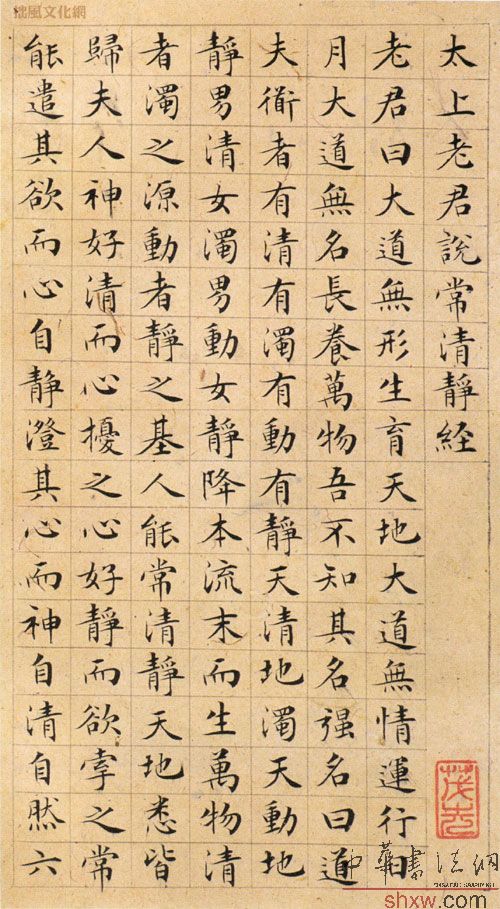 太上老君說常清靜経
老君曰大道無形生育天地大道無情運行日
月大道無名長養萬物吾不知其名强名曰道
夫衜者有清有濁有動有靜天清地濁天動地
靜男清女濁男動女靜降本流末而生萬物清
者濁之源動者靜之基人能常清靜天地悉皆
歸夫人神好清而心擾之心好靜而欲牽之常
能遣其欲而心自靜澄其心而神自清自然六
拙風文化網
中華書法網
shxw.com